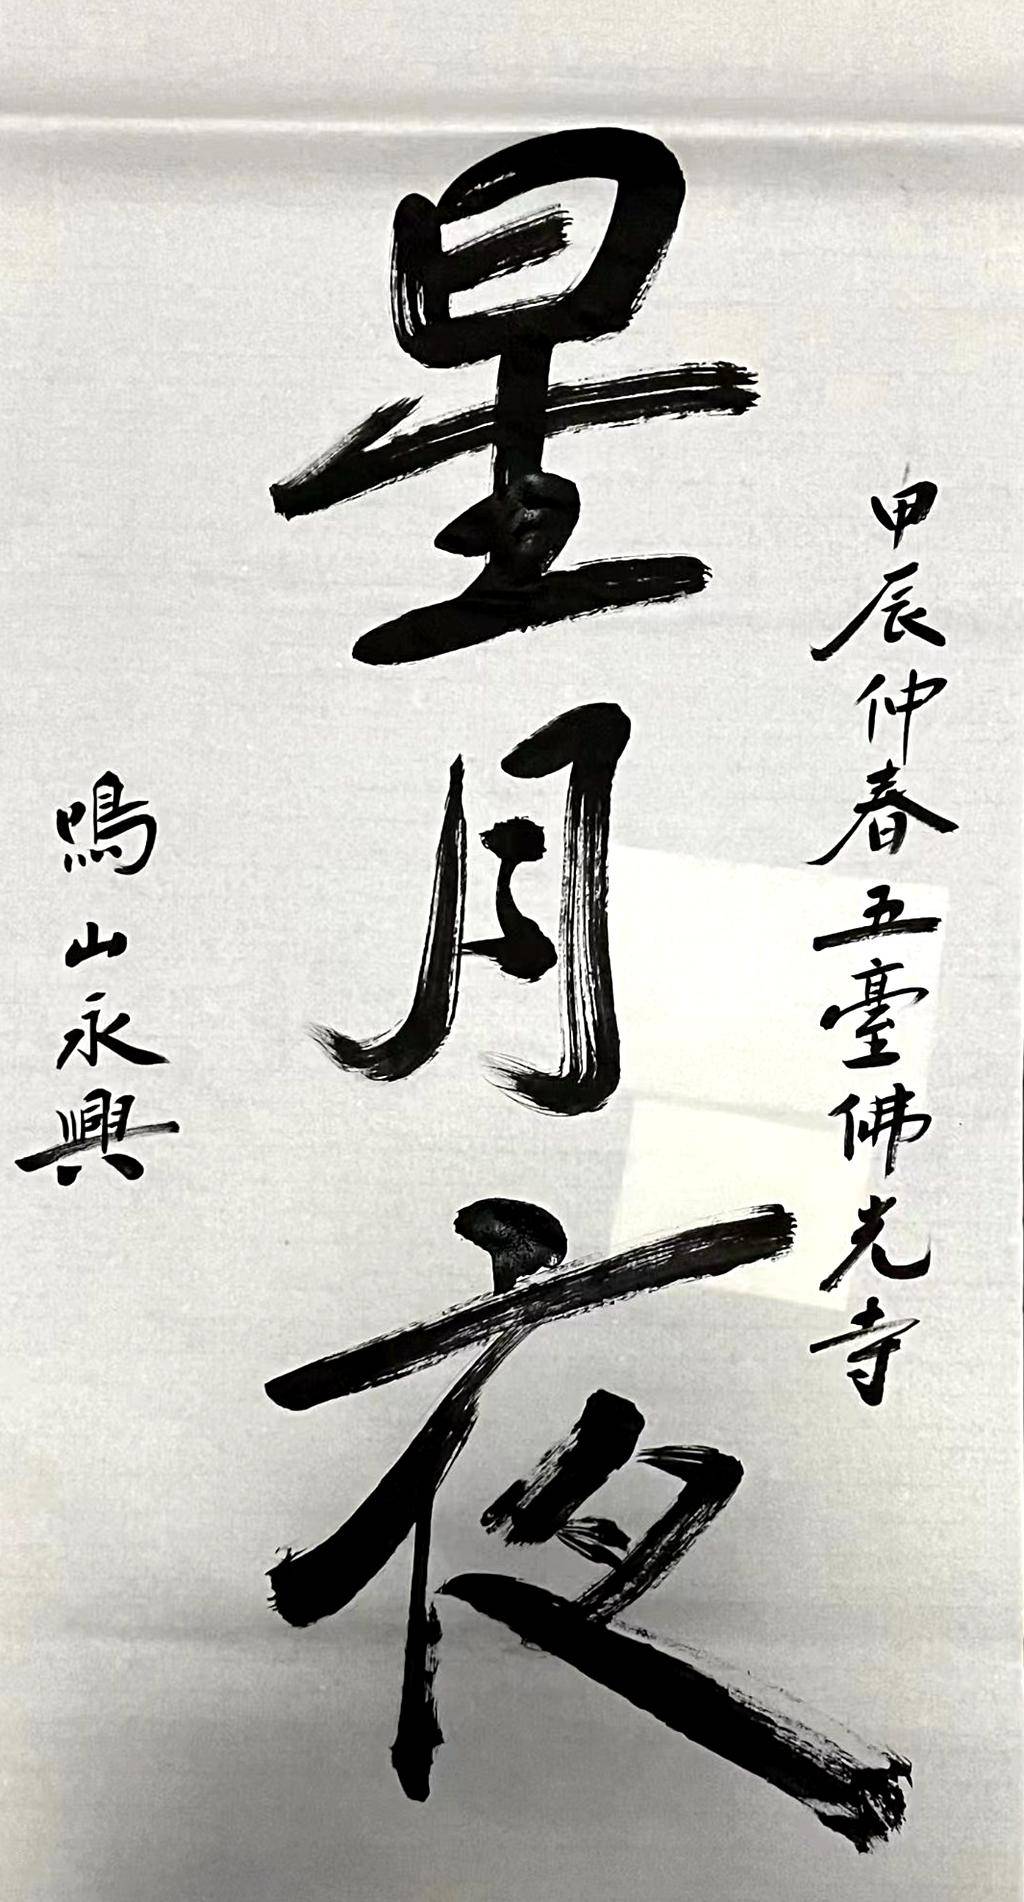 甲辰仲春五臺佛光寺
星月夜
鳴山永興